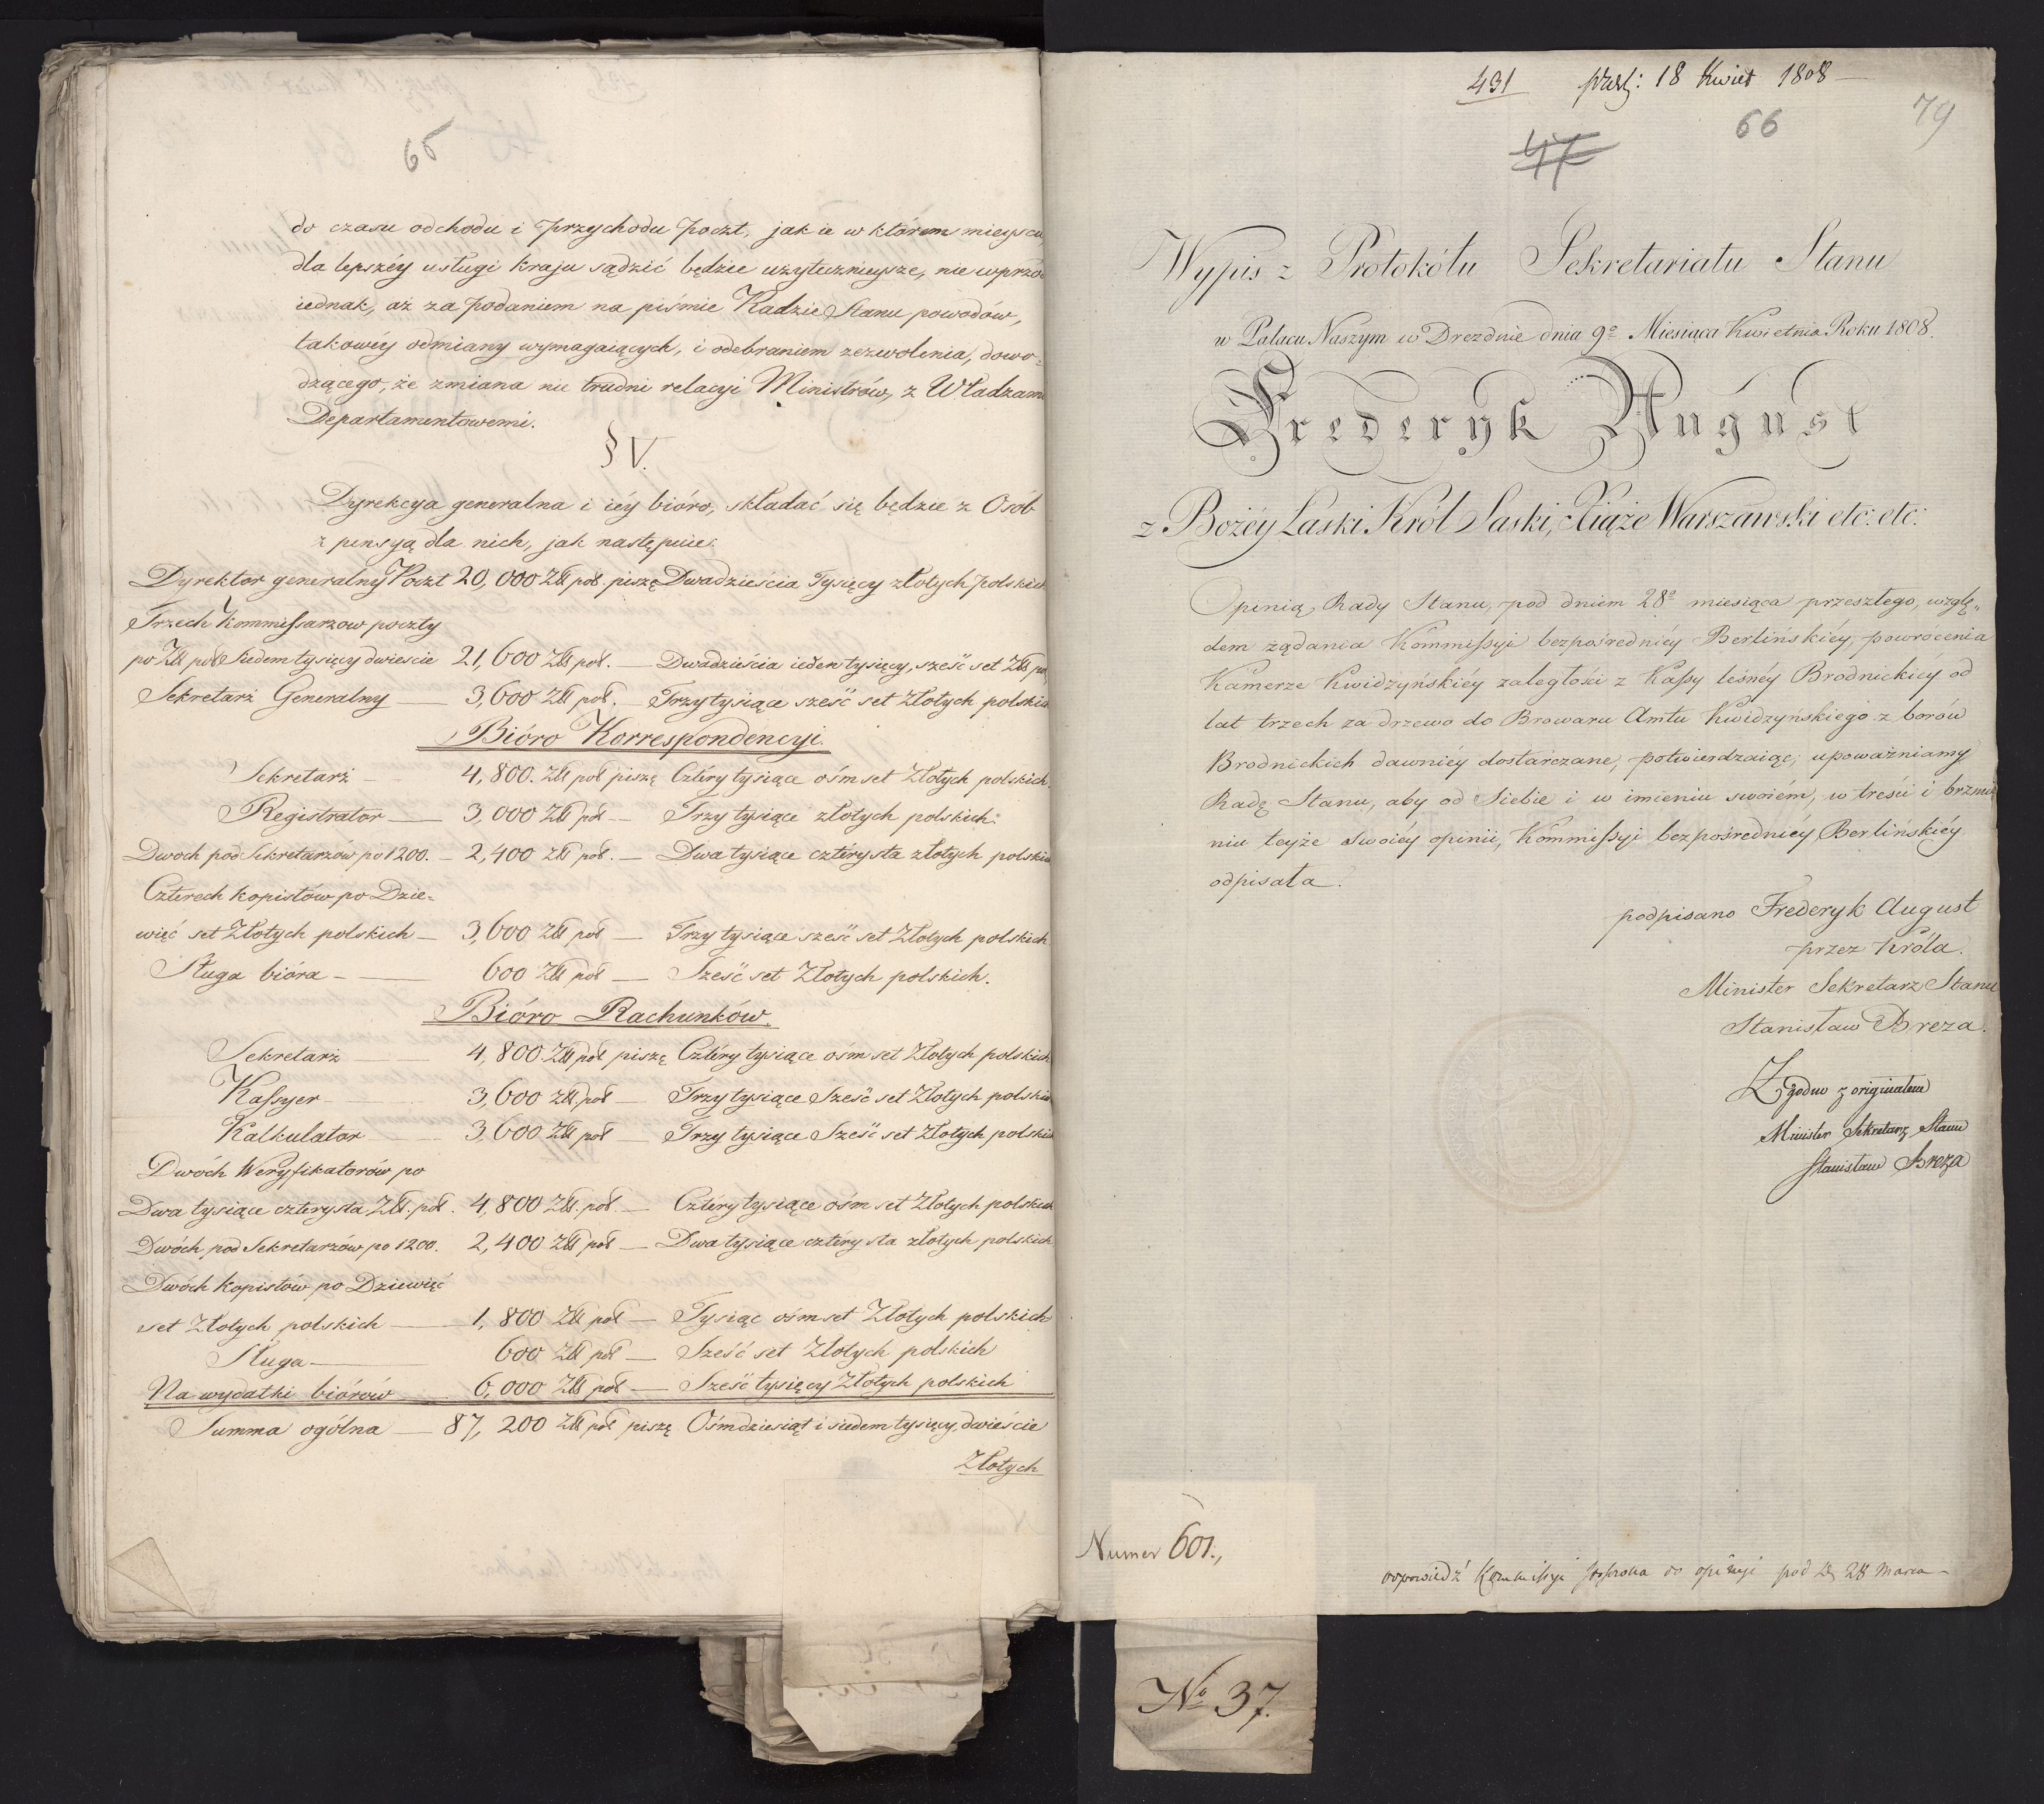 65
do czasu odchodu i przychodu poczt, jakie w którem mieyscu,
dla lepszéy usługi kraju sądzić będzie użytecznieysze, nie wprzód
iednak, aż za podaniem na piśmie Radzie Stanu powodów,
takowéy odmiany wymagaiących, i odebraniem zezwolenia, dowo=
dzącego, że zmiana nie trudni relacyi Ministrów, z Władzami
Departamentowemi.
§ V.
Dyrekcya generalna i iéy bióro, składać się będzie z Osób
z pensyą dla nich, jak następuie:
Dyrektor generalny Poczt 20,000 Złł pol. piszę Dwadzieścia Tysięcy złotych polskich
Trzech Kommissarzow poczty
po Złł pol Siedem tysięcy dwieście 21,600 Złł pol. — Dwadzieścia ieden tysięcy, sześć set Złł pol
Sekretarz Generalny — 3,600 Złł pol. — Trzy tysiące sześć set Złotych polskich
Bióro Korrespondencyi.
Sekretarz — 4,800. Złł pol piszę Cztéry tysiące ośm set Złotych polskich.
Registrator — 3,000 Złł pol — Trzy tysiące złotych polskich.
Dwoch pod Sekretarzów po 1200. — 2,400 Złł pol. — Dwa tysiące cztérysta złotych polskich
Czterech kopistów po Dzie=
więć set Złotych polskich — 3,600 Złł pol — Trzy tysiące sześć set Złotych polskich
Sługa bióra — 600 Złł pol — Sześć set Złotych polskich.
Bióro Rachunków.
Sekretarz — 4,800 Złł pol piszę Cztéry tysiące ośm set Złotych polskich
Kassyer — 3,600 Złł. pol — Trzy tysiące Sześć set Złotych polskich
Kalkulator — 3,600 Złł pol — Trzy tysiące Sześć set Złotych polskich
Dwóch Weryfikatorów po
Dwa tysiące czterysta Złł. pol. 4,800 Złł. pol. — Cztéry tysiące ośm set Złotych polskich
Dwóch pod Sekretarzów po 1200. 2,400 Złł pol — Dwa tysiące cztéry sta złotych polskich
Dwóch kopistów po Dziewięć
set Złotych polskich — 1,800 Złł pol — Tysiąc ośm set Złotych polskich
Sługa — 600 Złł pol — Sześć set Złotych polskich
Na wydatki biórów — 6,000 Złł pol — Sześć tysięcy Złotych polskich
Summa ogólna — 87,200 Złł pol piszę Ośmdziesiąt i siedem tysięcy, dwieście
Złotych
431 18 Kwiet 1808 —
66
79
47
Wypis z Protokółu Sekretariatu Stanu
w Pałacu Naszym w Dreznie dnia 9º Miesiąca Kwietnia Roku 1808.
Frederyk August
z Bożéy Łaski Król Saski, Xiąże Warszawski etc: etc:
Opinią Rady Stanu, pod dniem 28º miesiąca przeszłego, wzglę„
dem żądania Kommissyi bezpośrednićy Berlińskiéy, powrocenia
Kamerze Kwidzyńskiéy zaległości z Kassy leśnéy Brodnickiéy od
lat trzech za drzewo do Browaru Amtu Kwidzyńskiego z borów
Brodnickich dawniéy dostarczane, potwierdzaiąc, upoważniamy
Radę Stanu, aby od Siebie i w imieniu swoiém, w treści i brzmie
niu teyże swoiéy opinii, Kommissyi bezpośredniéy Berlińskiéy
odpisała.
podpisano Frederyk August
przez Króla.
Minister Sekretarz Stanu
Stanisław Breza.
Zgodno z originałem
Minister Sekretarz Stanu
Stanisław Breza
Numer 601.,
odpowiedź Kommissyi stosowna do opinji pod D. 28 Marca —
No 37.